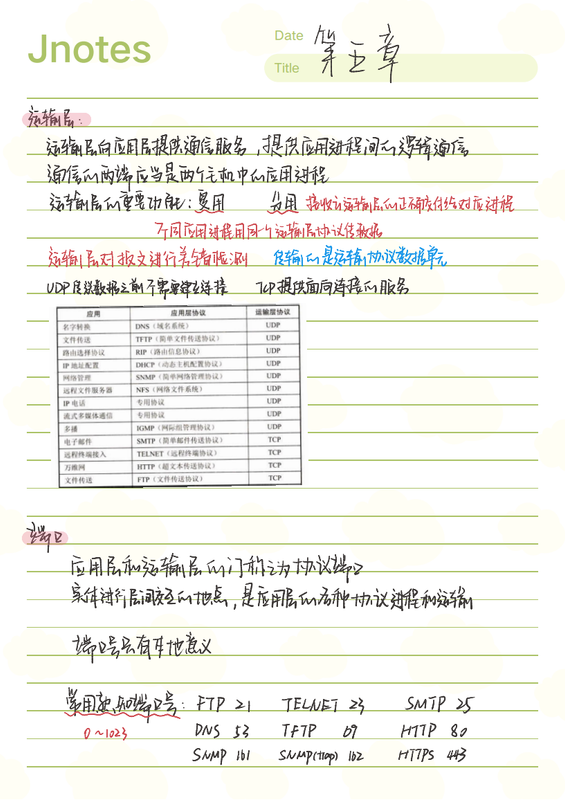 Jnotes
Date
Title
第五章
运输层:
运输层向应用层提供通信服务，提供应用进程间的逻辑通信
通信的两端应当是两个主机中的应用进程
运输层的重要功能:复用 分用 接收方运输层的正确交付给对应进程
不同应用进程用同一个运输层协议传数据
运输层对报文进行差错检测 传输的是运输协议数据单元
UDP传送数据之前不需要建立连接 TCP提供面向连接的服务
应用 应用层协议 运输层协议
名字转换 DNS（域名系统） UDP
文件传送 TFTP（简单文件传送协议） UDP
路由选择协议 RIP（路由信息协议） UDP
IP 地址配置 DHCP（动态主机配置协议） UDP
网络管理 SNMP（简单网络管理协议） UDP
远程文件服务器 NFS（网络文件系统） UDP
IP 电话 专用协议 UDP
流式多媒体通信 专用协议 UDP
多播 IGMP（网际组管理协议） UDP
电子邮件 SMTP（简单邮件传送协议） TCP
远程终端接入 TELNET（远程终端协议） TCP
万维网 HTTP（超文本传送协议） TCP
文件传送 FTP（文件传送协议） TCP
端口
应用层和运输层的门称之为协议端口
实体进行层间交互的地点，是应用层的各种协议进程和运输
端口号只有本地意义
常用熟知端口号: FTP 21 TELNET 23 SMTP 25
0~1023 DNS 53 TFTP 69 HTTP 80
SNMP 161 SNMP(trap) 162 HTTPS 443